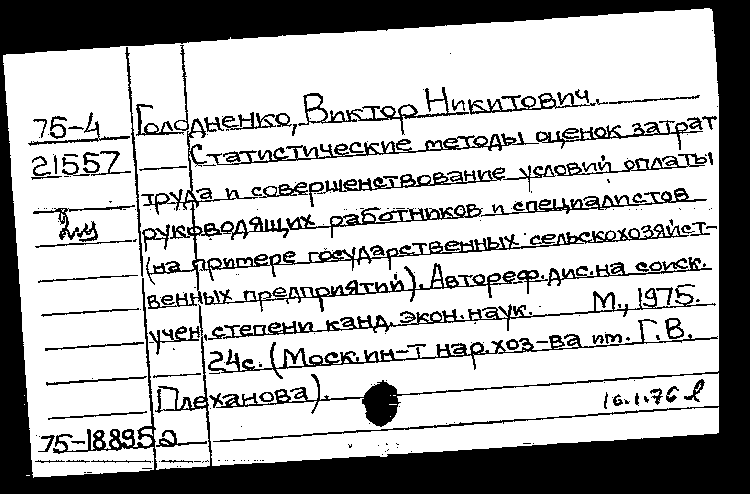 75-4 Голодненко, Виктор Никитович.
21557 Статистические методы оценок затрат
труда и совершенствование условий оплаты
руководящих работников и специалистов
(на примере государственных сельскохозяйст-
венных предприятий). Автореф.дис.на соиск.
учен.степени канд.экон.наук. М., 1975.
24с. (Моск.ин-т нар.хоз-ва им. Г.В.
Плеханова).
16.1.76
75-18895